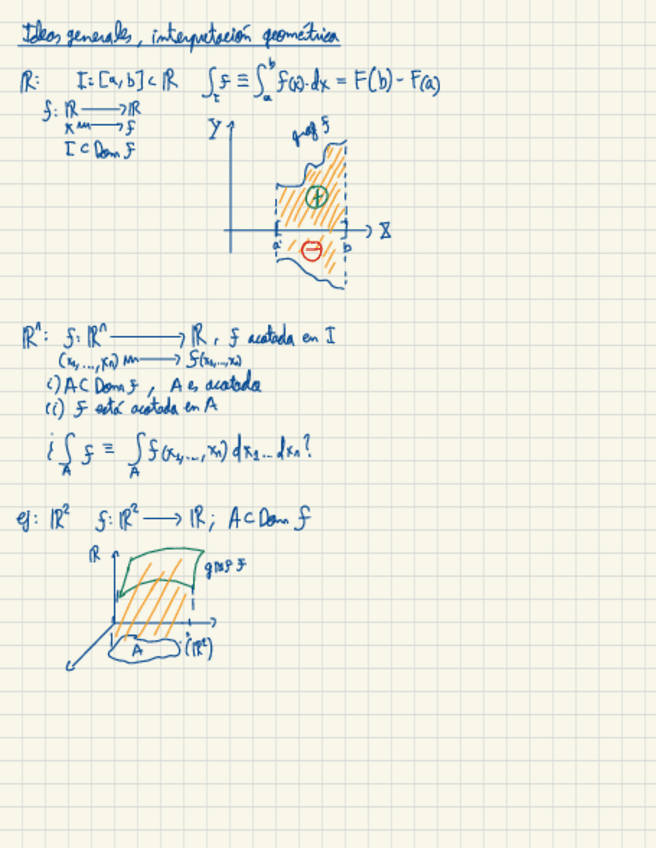 Ideas generales, interpretación geométrica
ℝ: I=[a,b]⊂ℝ ∫_I f ≡ ∫_a^b f(x)·dx = F(b) - F(a)
f: ℝ ⟶ ℝ
x ⟿ f
I ⊂ Dom f
Y
graf f
+
X
a
b
−
ℝⁿ: f: ℝⁿ ⟶ ℝ, f acotada en I
(x₁,...,xₙ) ⟿ f(x₁,...,xₙ)
i) A⊂Dom f, A es acotada
ii) f está acotada en A
¿∫_A f ≡ ∫_A f(x₁,...,xₙ) dx₁...dxₙ?
ej: ℝ² f: ℝ² ⟶ ℝ; A⊂Dom f
ℝ
graf f
A
(ℝ²)